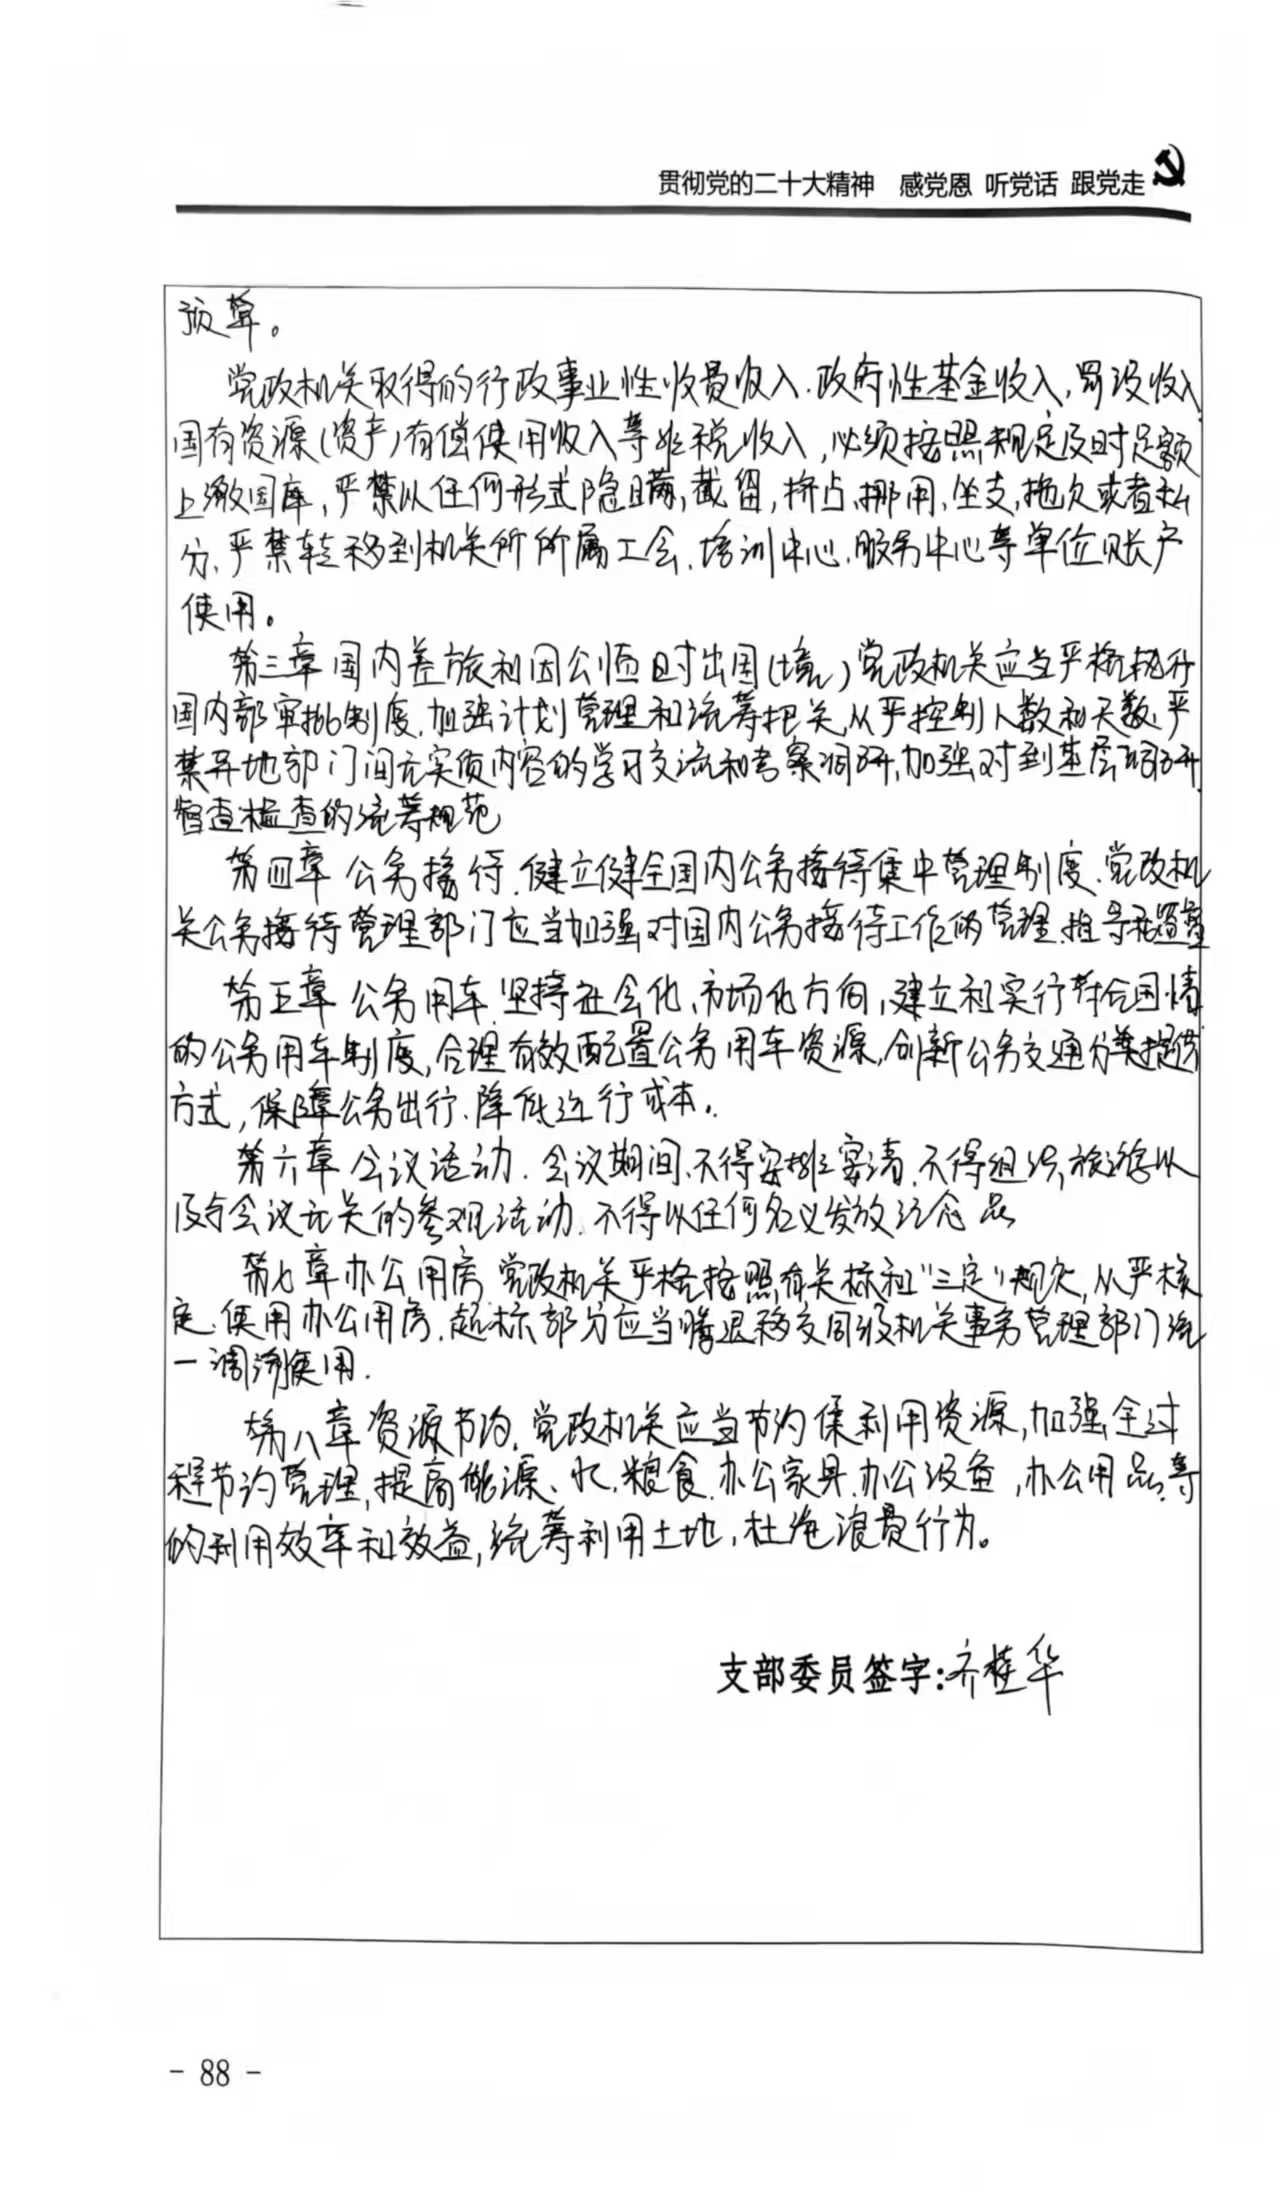 贯彻党的二十大精神 感党恩 听党话 跟党走
预算。
党政机关取得的行政事业性收费收入、政府性基金收入,罚没收入、
国有资源(资产)有偿使用收入等非税收入,必须按照规定及时足额
上缴国库,严禁以任何形式隐瞒,截留,挤占,挪用,坐支,拖欠或者私
分、严禁转移到机关所所属工会、培训中心、服务中心等单位账户
使用。
第三章国内差旅和因公临时出国(境)党政机关应当严格执行
国内部审批制度,加强计划管理和统筹把关,从严控制人数和天数,严
禁异地部门间无实质内容的学习交流和考察调研,加强对到基层调研
督查检查的统筹规范
第四章 公务接待、健立健全国内公务接待集中管理制度、党政机
关公务接待管理部门应当加强对国内公务接待工作的管理、指导和监督
第五章 公务用车 坚持社会化、市场化方向,建立和实行符合国情
的公务用车制度,合理有效配置公务用车资源,创新公务交通分类提供
方式,保障公务出行、降低运行成本。
第六章 会议活动、会议期间、不得安排宴请、不得组织旅游以
及与会议无关的参观活动、不得以任何名义发放纪念品
第七章办公用房 党政机关严格按照有关标和“三定”规定,从严核
定、使用办公用房,超标部分应当腾退移交同级机关事务管理部门统
一调济使用.
第八章资源节约,党政机关应当节约集利用资源,加强全过
程节约管理,提高能源、水、粮食、办公家具、办公设备,办公用品等
的利用效率和效益,统筹利用土地,杜绝浪费行为。
支部委员签字:齐桂华
- 88 -